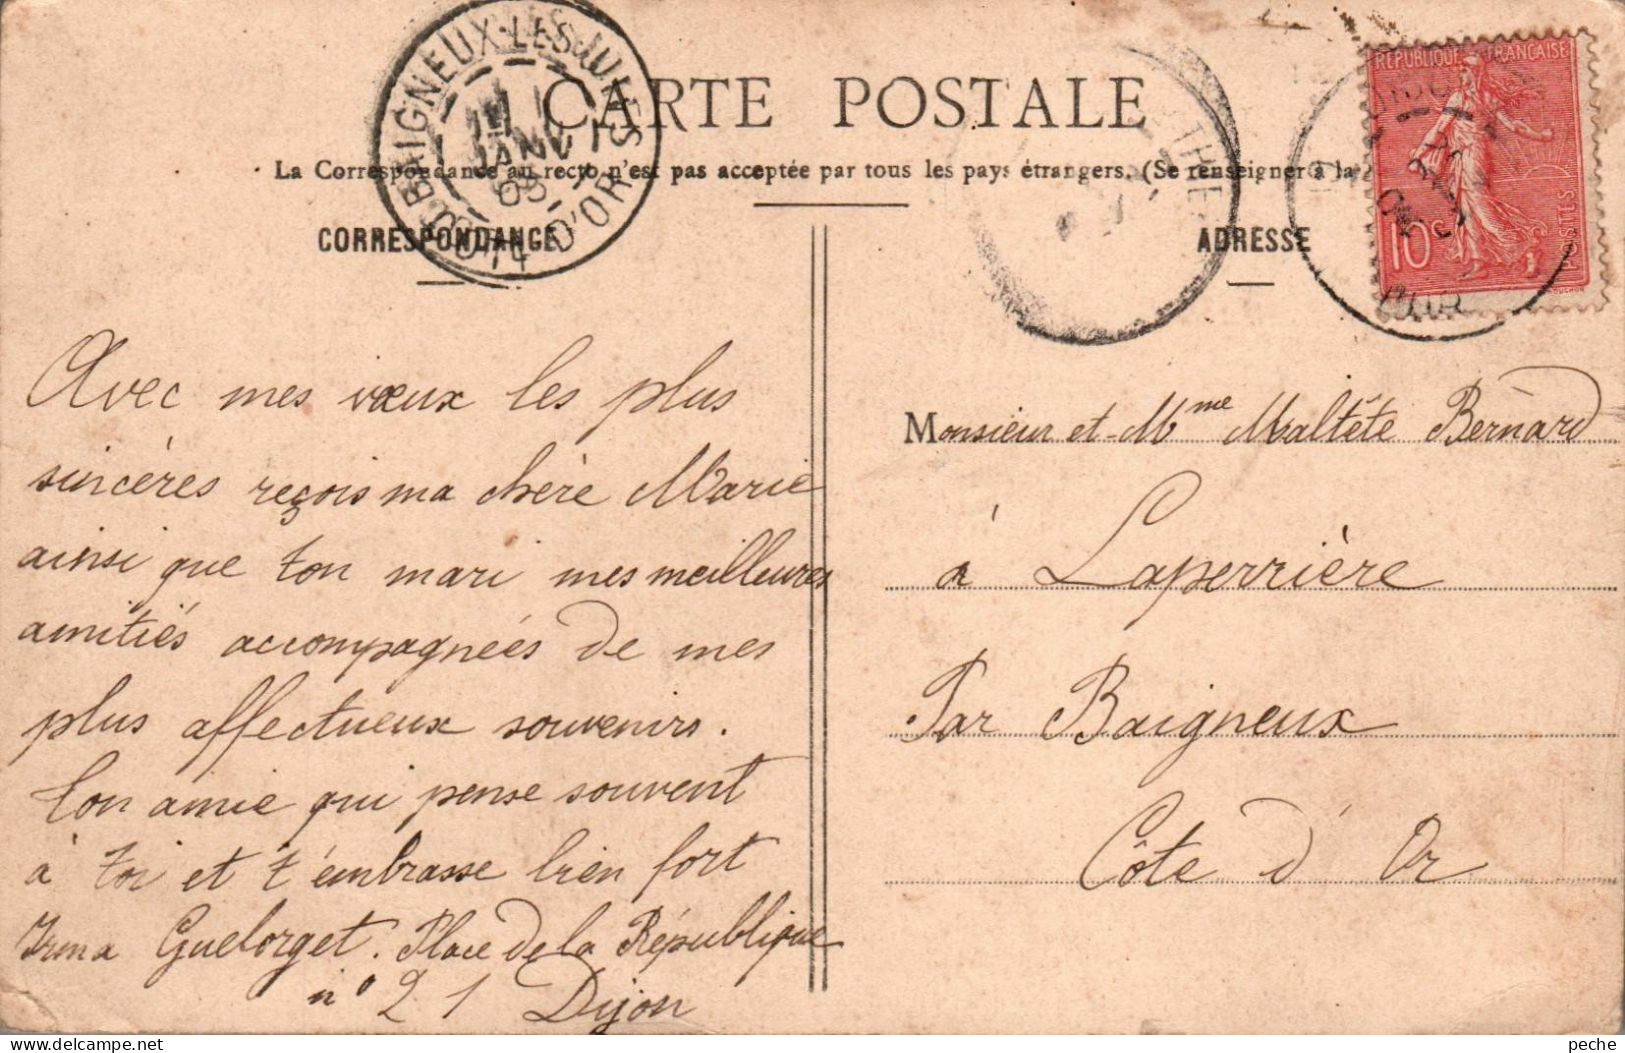 CARTE POSTALE
La Correspondance au recto n'est pas acceptée par tous les pays étrangers. (Se renseigner à la
CORRESPONDANCE
ADRESSE
BAIGNEUX-LES-JUIFS
JANV
COTE-D'OR
REPUBLIQUE FRANÇAISE
10c
POSTES
Avec mes vœux les plus
sincères reçois ma chère Marie
ainsi que ton mari mes meilleures
amitiés accompagnées de mes
plus affectueux souvenirs.
Ton amie qui pense souvent
à toi et t'embrasse bien fort
Irma Guelorget. Place de la République
n° 21 Dijon
Monsieur et Mme Maltête Bernard
à Laperrière
Par Baigneux
Côte d'Or
delcampe.net
peche